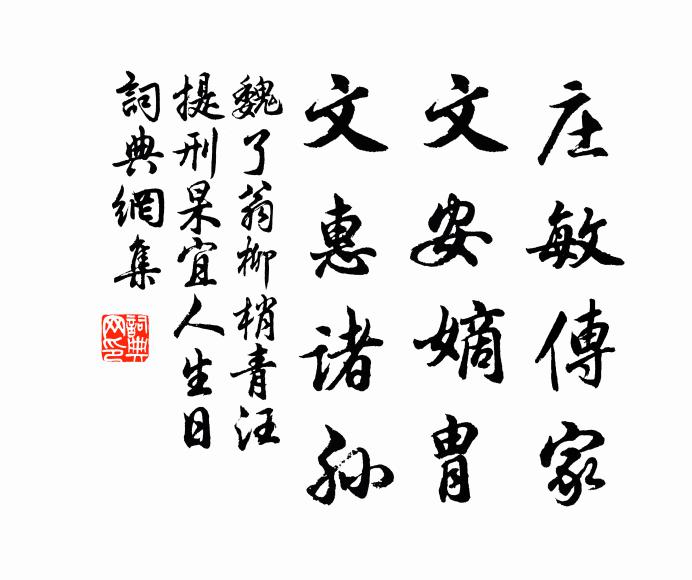 庄敏傳家
文安嫡胄
文惠诸孙
魏了翁柳梢青汪
提刑杲宜人生日
詞典網集
詞典
网印